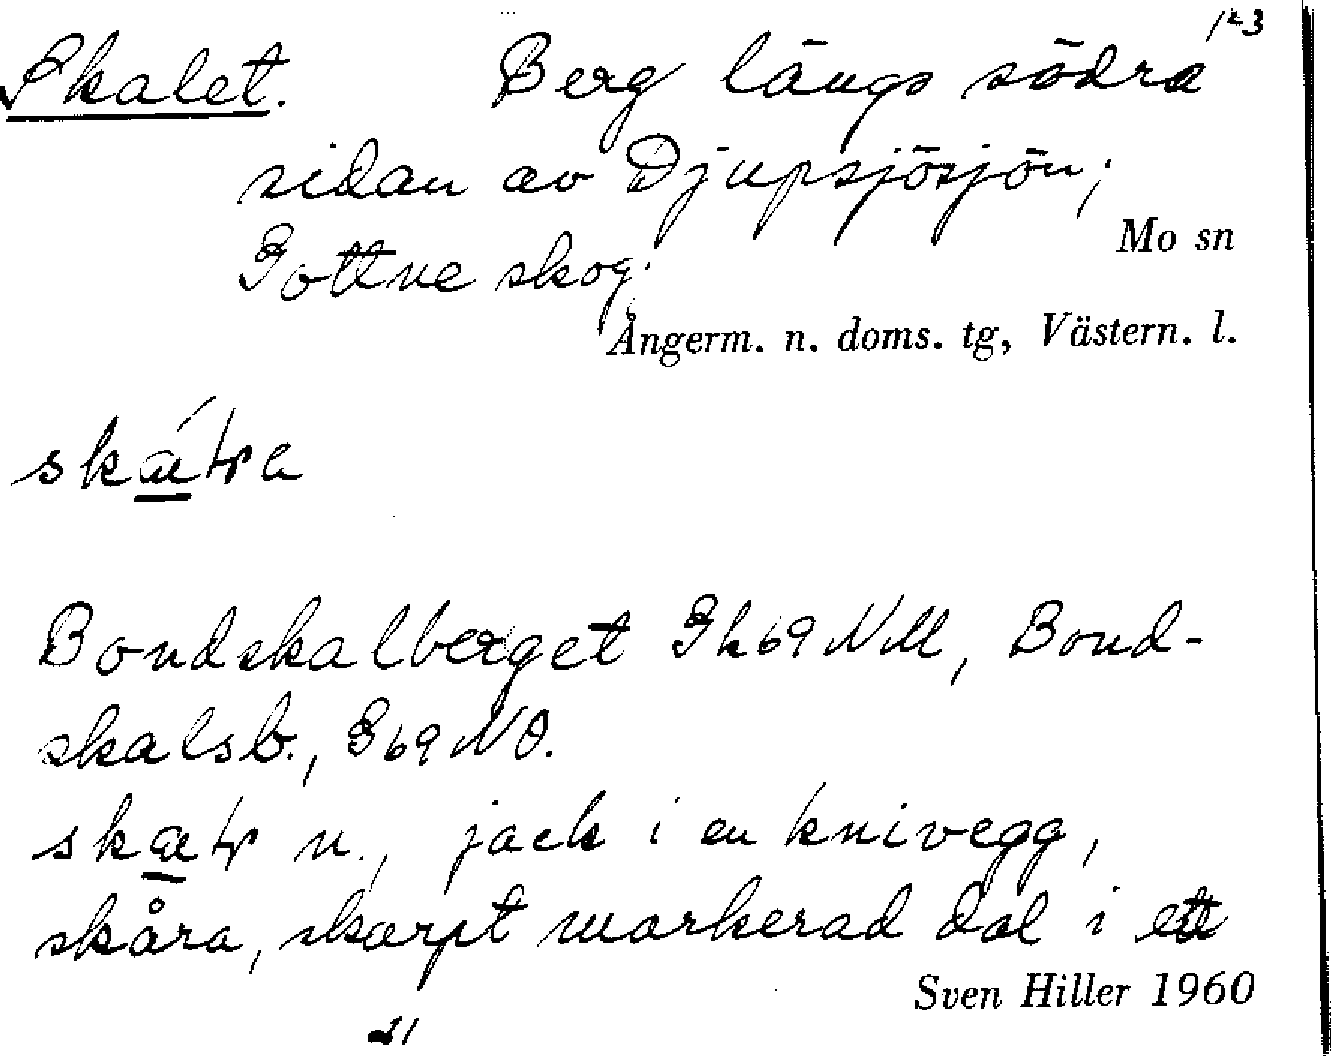 123
Skalet. Berg längs södra
sidan av Djupsjösjön;
Gottne skog.
Mo sn
Ångerm. n. doms. tg, Västern. l.
Bondskalberget Gh69NM, Bond-
skalsb., G69NO.
n., jack i en knivegg,
skåra, skarpt markerad dal i ett
Sven Hiller 1960